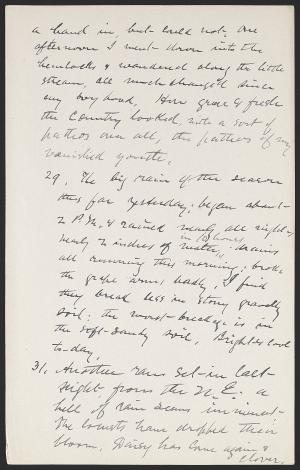 a hand in, but could not. One
afternoon I went down into the
hemlocks & wandered along the little
stream, all much changed since
my boyhood. How green & fresh
the country looked with a sort of
pathos over all, the pathos of my
vanished youth.
29. The big rain of the season
thus far yesterday; began about
2 P.M. & rained nearly all night,
in 18 hours
nearly 2 inches of water, drains
all running this morning; broke
the grape arms badly. I find
they break less in stony gravelly
soil; the worst breakage is in
the soft sandy soil. Bright & cool
to-day.
31. Another rain set in last
night from the N.E.; a
hell of rain seems imminent.
The locusts have dropped their
bloom. Daisy has come again &
clover.